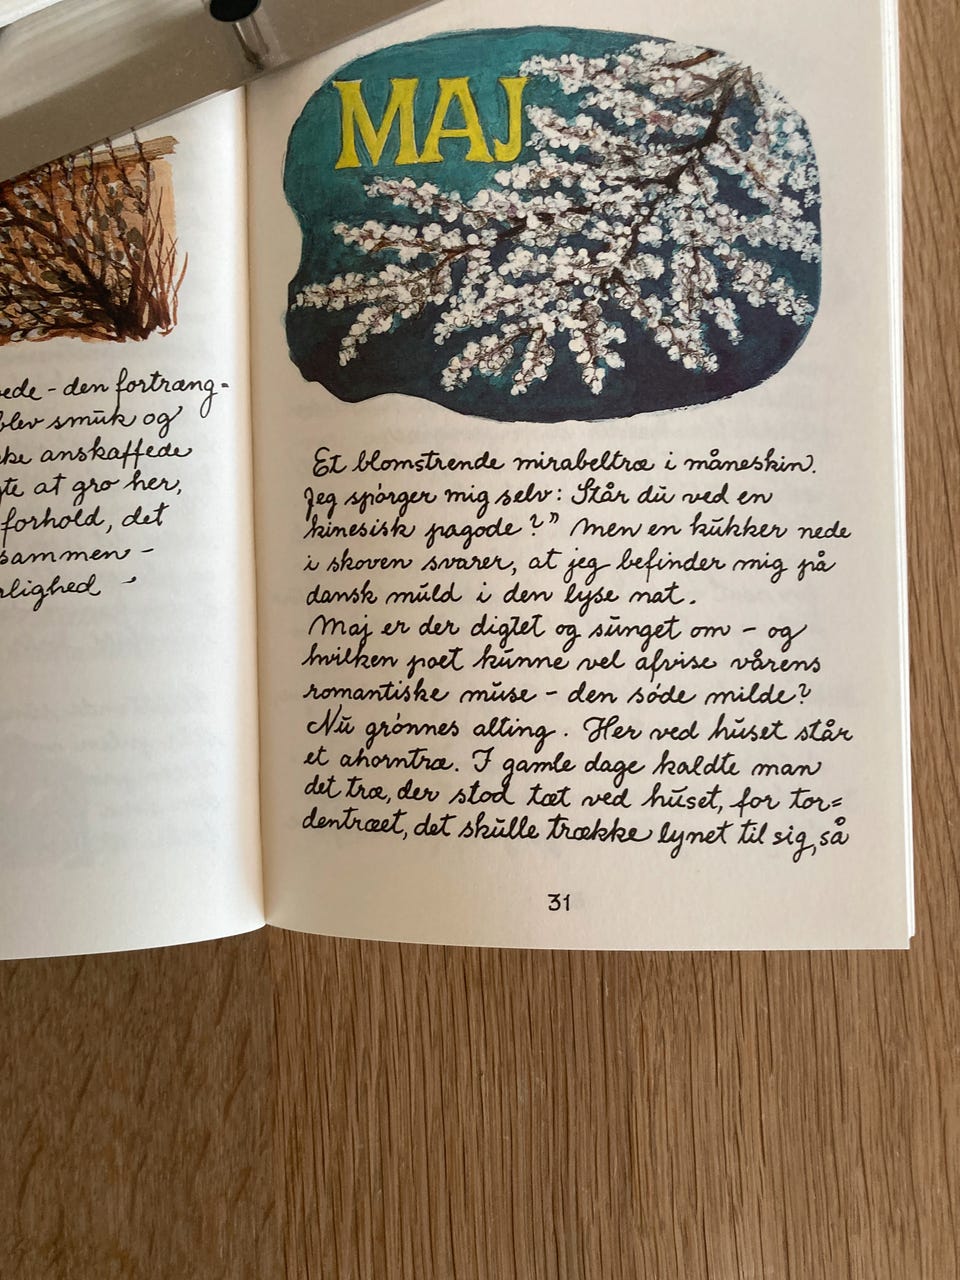 - den fortræng-
blev smuk og
anskaffede
at gro her,
forhold, det
sammen -
MAJ
Et blomstrende mirabeltræ i måneskin.
Jeg spørger mig selv: Står du ved en
kinesisk pagode?” Men en kukker nede
i skoven svarer, at jeg befinder mig på
dansk muld i den lyse nat.
Maj er der digtet og sunget om - og
hvilken poet kunne vel afvise vårens
romantiske muse - den søde milde?
Nu grønnes alting. Her ved huset står
et ahorntræ. I gamle dage kaldte man
det træ, der stod tæt ved huset, for tor=
dentræet, det skulle trække lynet til sig, så
31